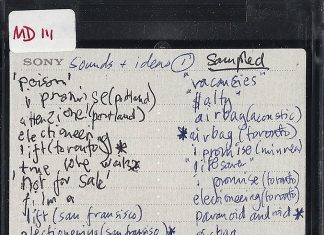 MD 111
SONY
Sounds + ideas ①
Sampled
'poison'
i promise (portland)
attenzione! (portland)
electioneering
lift (toronto) *
true love waits *
'not for sale'
i'm a
lift (san fransisco)
electioneering (san fransisco) *
"vacancies"
"flatly"
airbag (acoustic)
* airbag (toronto)
i promise (minnea
"lifesaver"
i promise (toronto)
electioneering (toronto)
paranoid android *